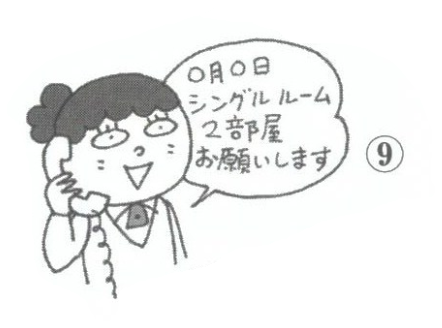 〇月〇日
シングルルーム
2部屋
お願いします
⑨